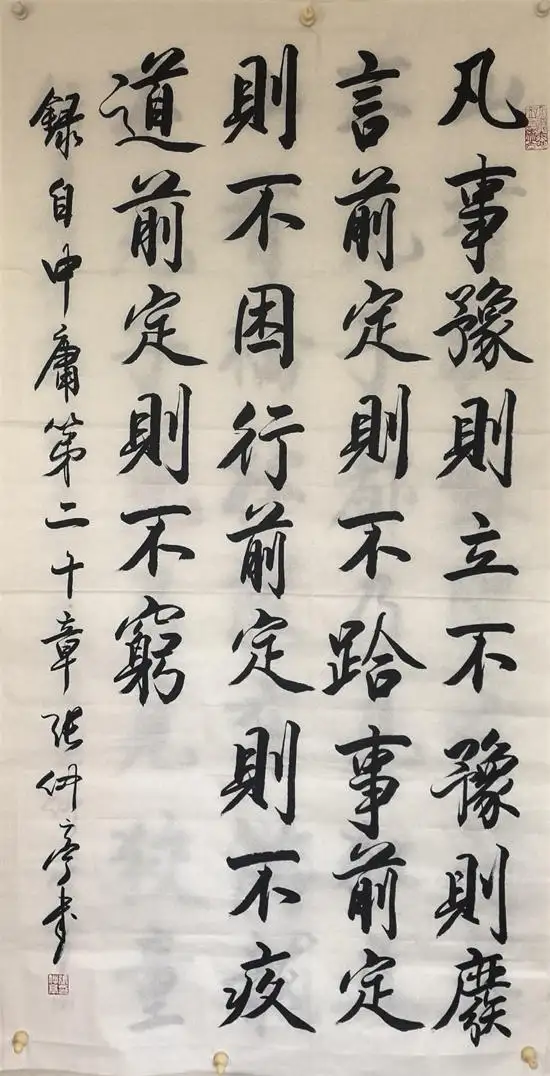 凡事豫則立不豫則廢
言前定則不跲事前定
則不困行前定則不疚
道前定則不窮
錄自中庸第二十章張仲亭书